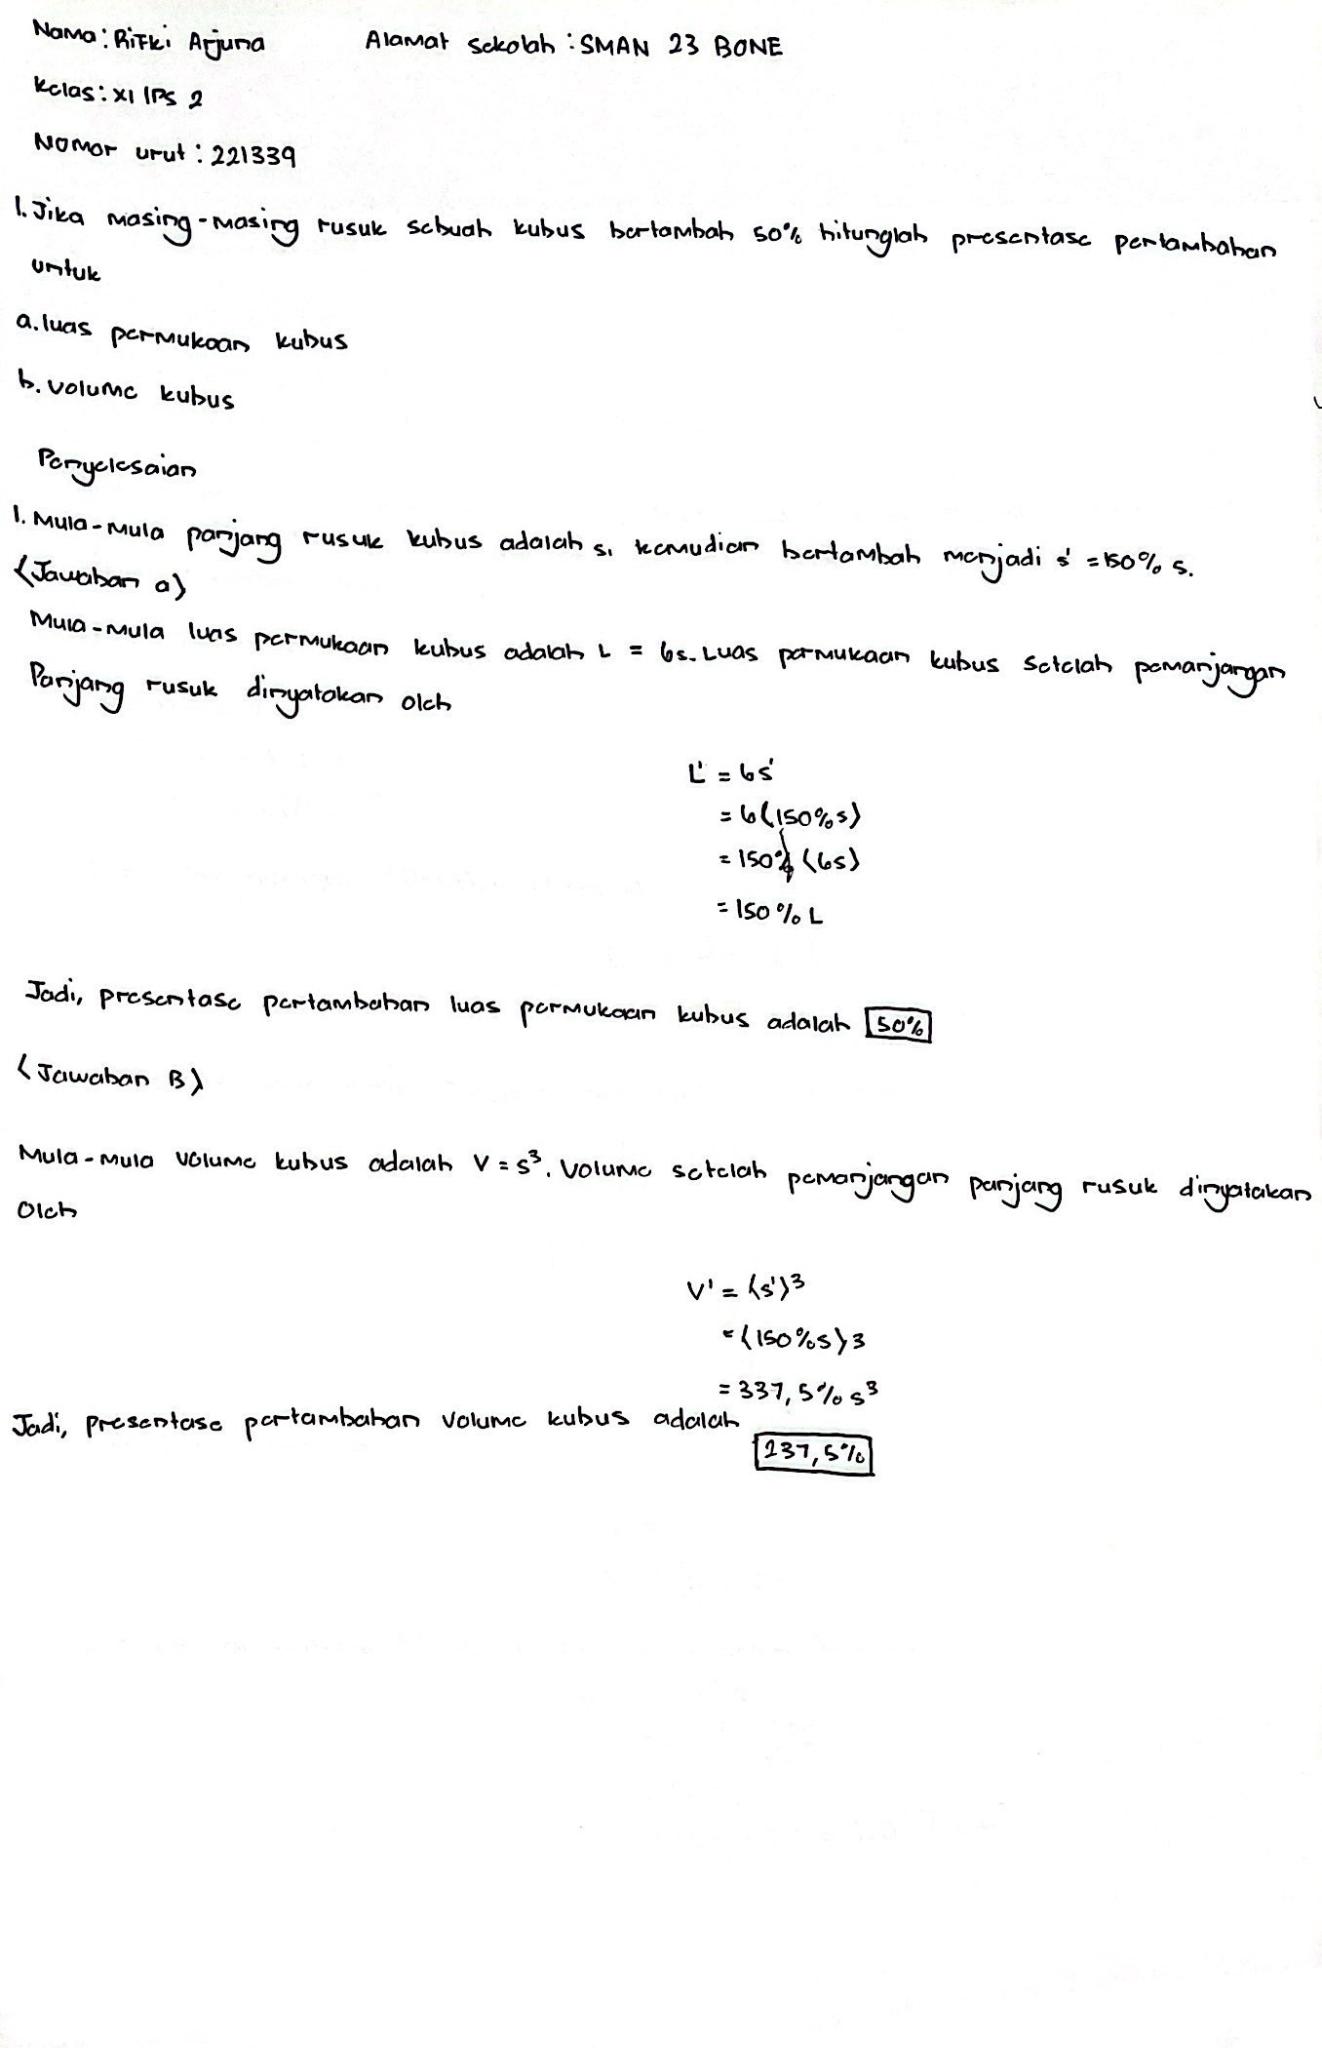 Nama : Rifki Arjuna Alamat sekolah : SMAN 23 BONE
Kelas : XI IPS 2
Nomor urut : 221339
1. Jika masing-masing rusuk sebuah kubus bertambah 50% hitunglah presentase pertambahan
untuk
a. luas permukaan kubus
b. volume kubus
Penyelesaian
1. Mula-mula panjang rusuk kubus adalah s, kemudian bertambah menjadi s' = 150% s.
(Jawaban a)
Mula-mula luas permukaan kubus adalah L = 6s. Luas permukaan kubus setelah pemanjangan
Panjang rusuk dinyatakan oleh
L' = 6s'
= 6(150%s)
= 150% (6s)
= 150% L
Jadi, presentase pertambahan luas permukaan kubus adalah 50%
(Jawaban B)
Mula-mula volume kubus adalah V = s³. Volume setelah pemanjangan panjang rusuk dinyatakan
Oleh
V' = (s')³
= (150%s)3
= 337,5% s³
Jadi, presentase pertambahan volume kubus adalah
237,5%